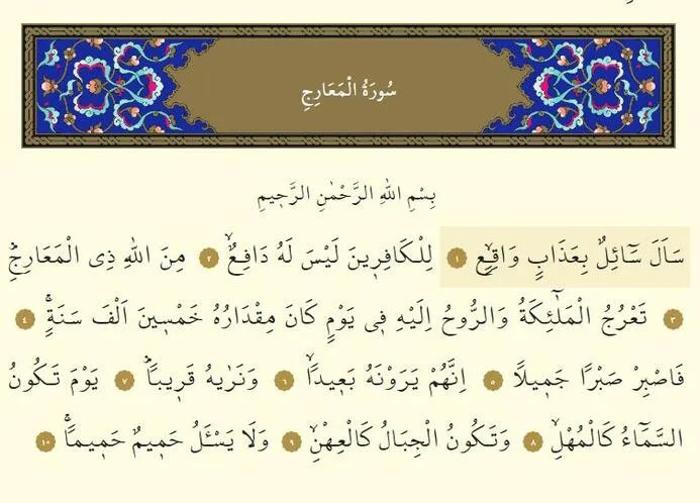 سُورَةُ الْمَعَارِجِ
بِسْمِ اللهِ الرَّحْمٰنِ الرَّحٖيمِ
سَاَلَ سَٓائِلٌ بِعَذَابٍ وَاقِعٍۙ ١ لِلْكَافِرٖينَ لَيْسَ لَهُ دَافِعٌۙ ٢ مِنَ اللهِ ذِى الْمَعَارِجِؕ
٣ تَعْرُجُ الْمَلٰٓئِكَةُ وَالرُّوحُ اِلَيْهِ فٖى يَوْمٍ كَانَ مِقْدَارُهُ خَمْسٖينَ اَلْفَ سَنَةٍۚ ٤
فَاصْبِرْ صَبْرًا جَمٖيلًا ٥ اِنَّهُمْ يَرَوْنَهُ بَعٖيدًاۙ ٦ وَنَرٰيهُ قَرٖيبًاؕ ٧ يَوْمَ تَكُونُ
السَّمَٓاءُ كَالْمُهْلِۙ ٨ وَتَكُونُ الْجِبَالُ كَالْعِهْنِۙ ٩ وَلَا يَسْـَٔلُ حَمٖيمٌ حَمٖيمًاۚ ١٠